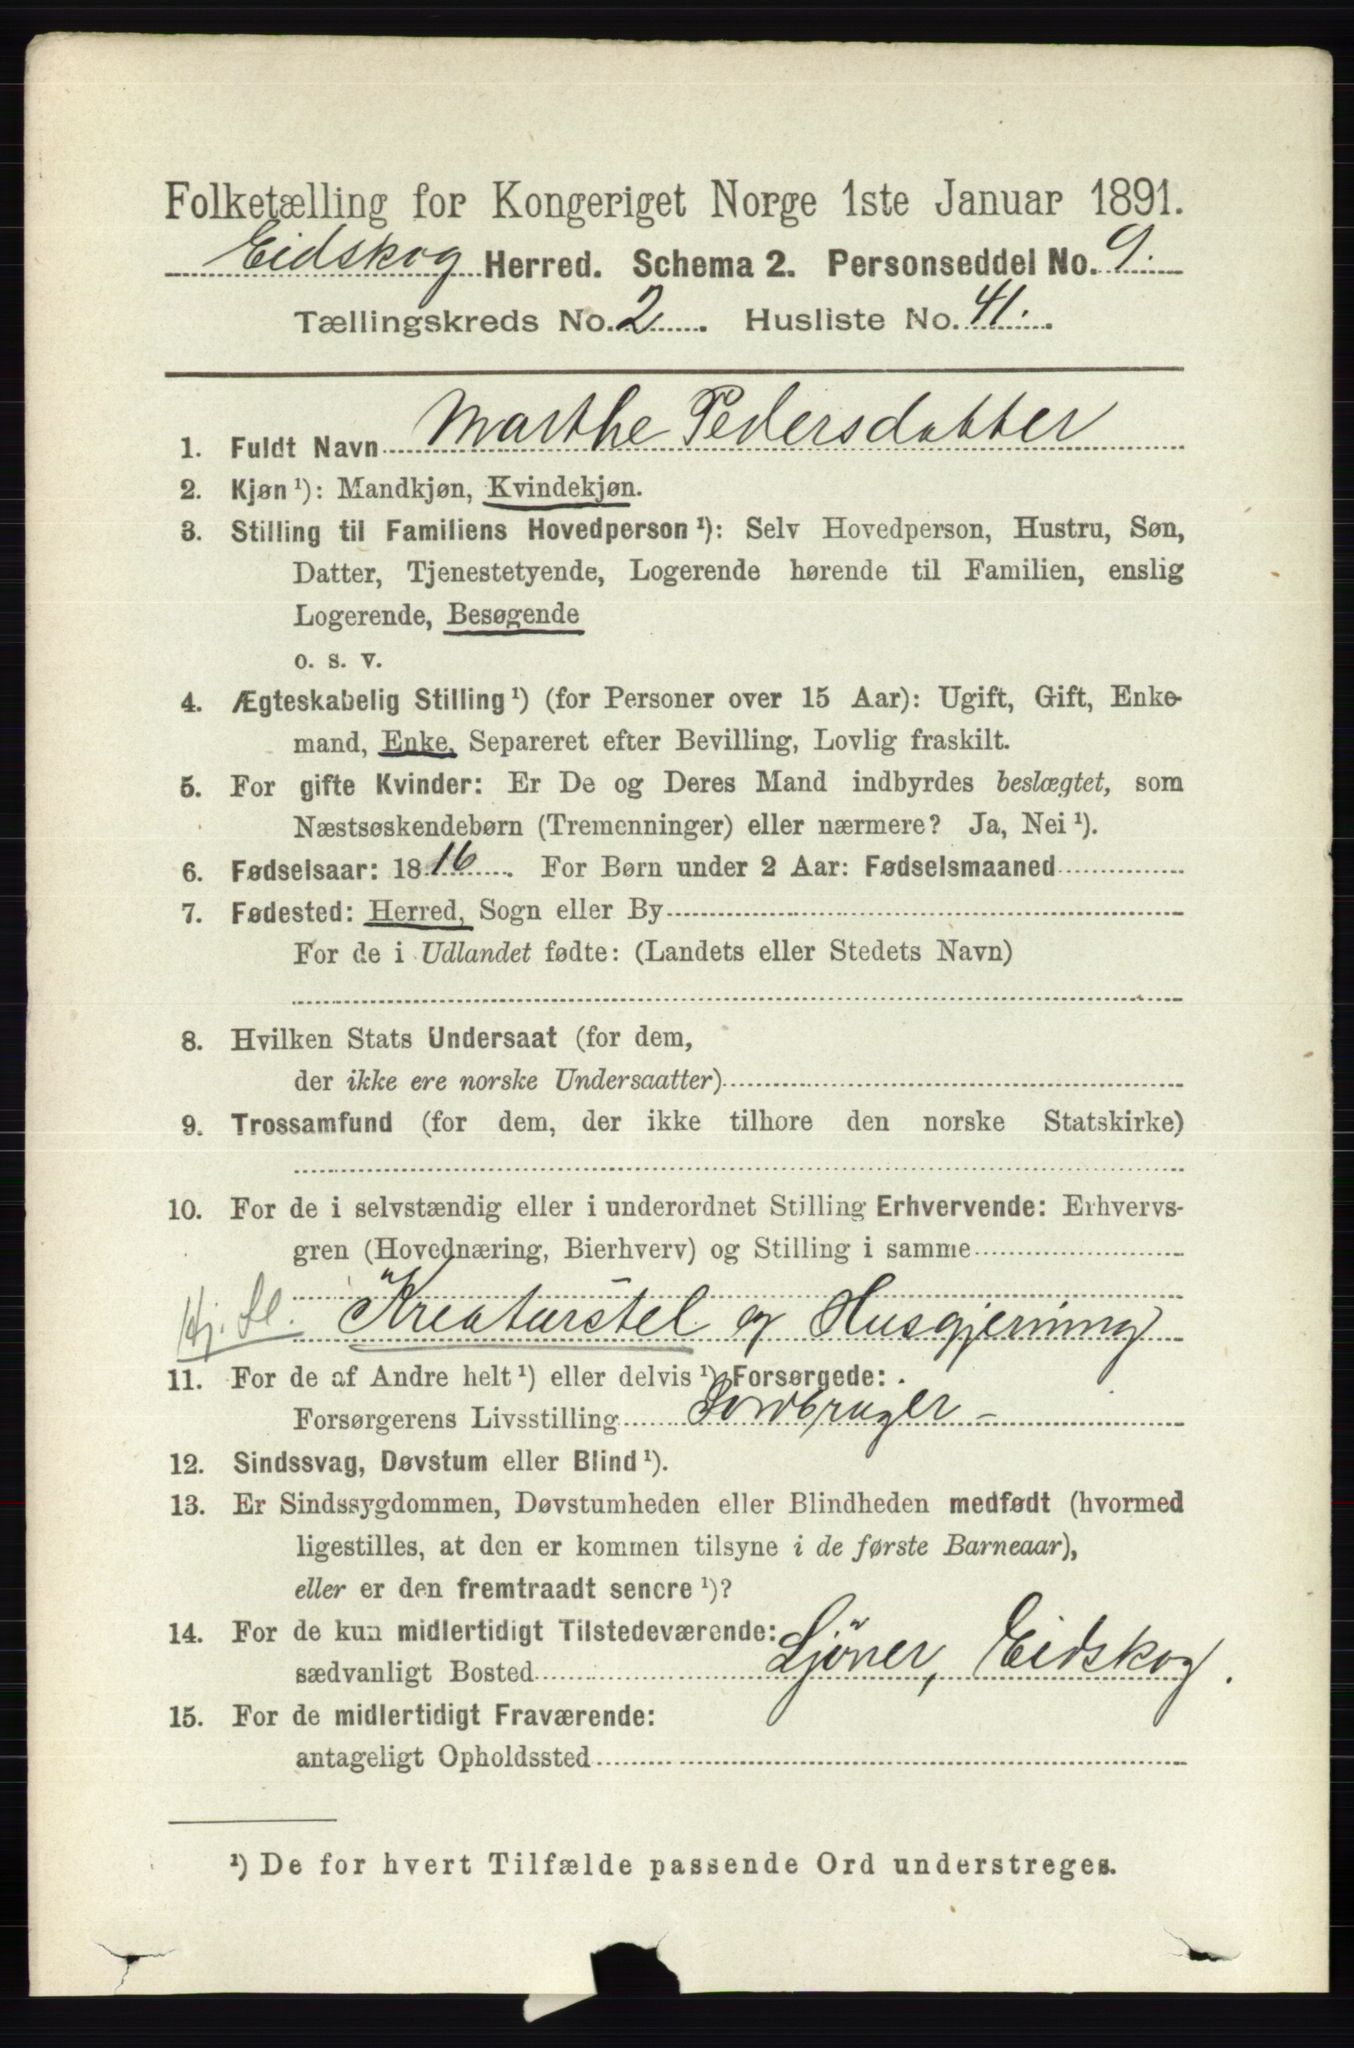 Folketælling for Kongeriget Norge 1ste Januar 1891.
Eidskog Herred. Schema 2. Personseddel No. 9.
Tællingskreds No. 2. Husliste No. 41.
1. Fuldt Navn Marthe Pedersdatter
2. Kjøn ¹): Mandkjøn, Kvindekjøn.
3. Stilling til Familiens Hovedperson ¹): Selv Hovedperson, Hustru, Søn,
Datter, Tjenestetyende, Logerende hørende til Familien, enslig
Logerende, Besøgende
o. s. v.
4. Ægteskabelig Stilling ¹) (for Personer over 15 Aar): Ugift, Gift, Enke-
mand, Enke, Separeret efter Bevilling, Lovlig fraskilt.
5. For gifte Kvinder: Er De og Deres Mand indbyrdes beslægtet, som
Næstsøskendebørn (Tremenninger) eller nærmere? Ja, Nei ¹).
6. Fødselsaar: 1816. For Børn under 2 Aar: Fødselsmaaned
7. Fødested: Herred, Sogn eller By
For de i Udlandet fødte: (Landets eller Stedets Navn)
8. Hvilken Stats Undersaat (for dem,
der ikke ere norske Undersaatter)
9. Trossamfund (for dem, der ikke tilhøre den norske Statskirke)
10. For de i selvstændig eller i underordnet Stilling Erhvervende: Erhvervs-
gren (Hovednæring, Bierhverv) og Stilling i samme
Hj. St. Kreaturstel og Husgjerning
11. For de af Andre helt ¹) eller delvis ¹) Forsørgede:
Forsørgerens Livsstilling Jordbruger -
12. Sindssvag, Døvstum eller Blind ¹).
13. Er Sindssygdommen, Døvstumheden eller Blindheden medfødt (hvormed
ligestilles, at den er kommen tilsyne i de første Barneaar),
eller er den fremtraadt senere ¹)?
14. For de kun midlertidigt Tilstedeværende:
sædvanligt Bosted Ljöner, Eidskog.
15. For de midlertidigt Fraværende:
antageligt Opholdssted
¹) De for hvert Tilfælde passende Ord understreges.